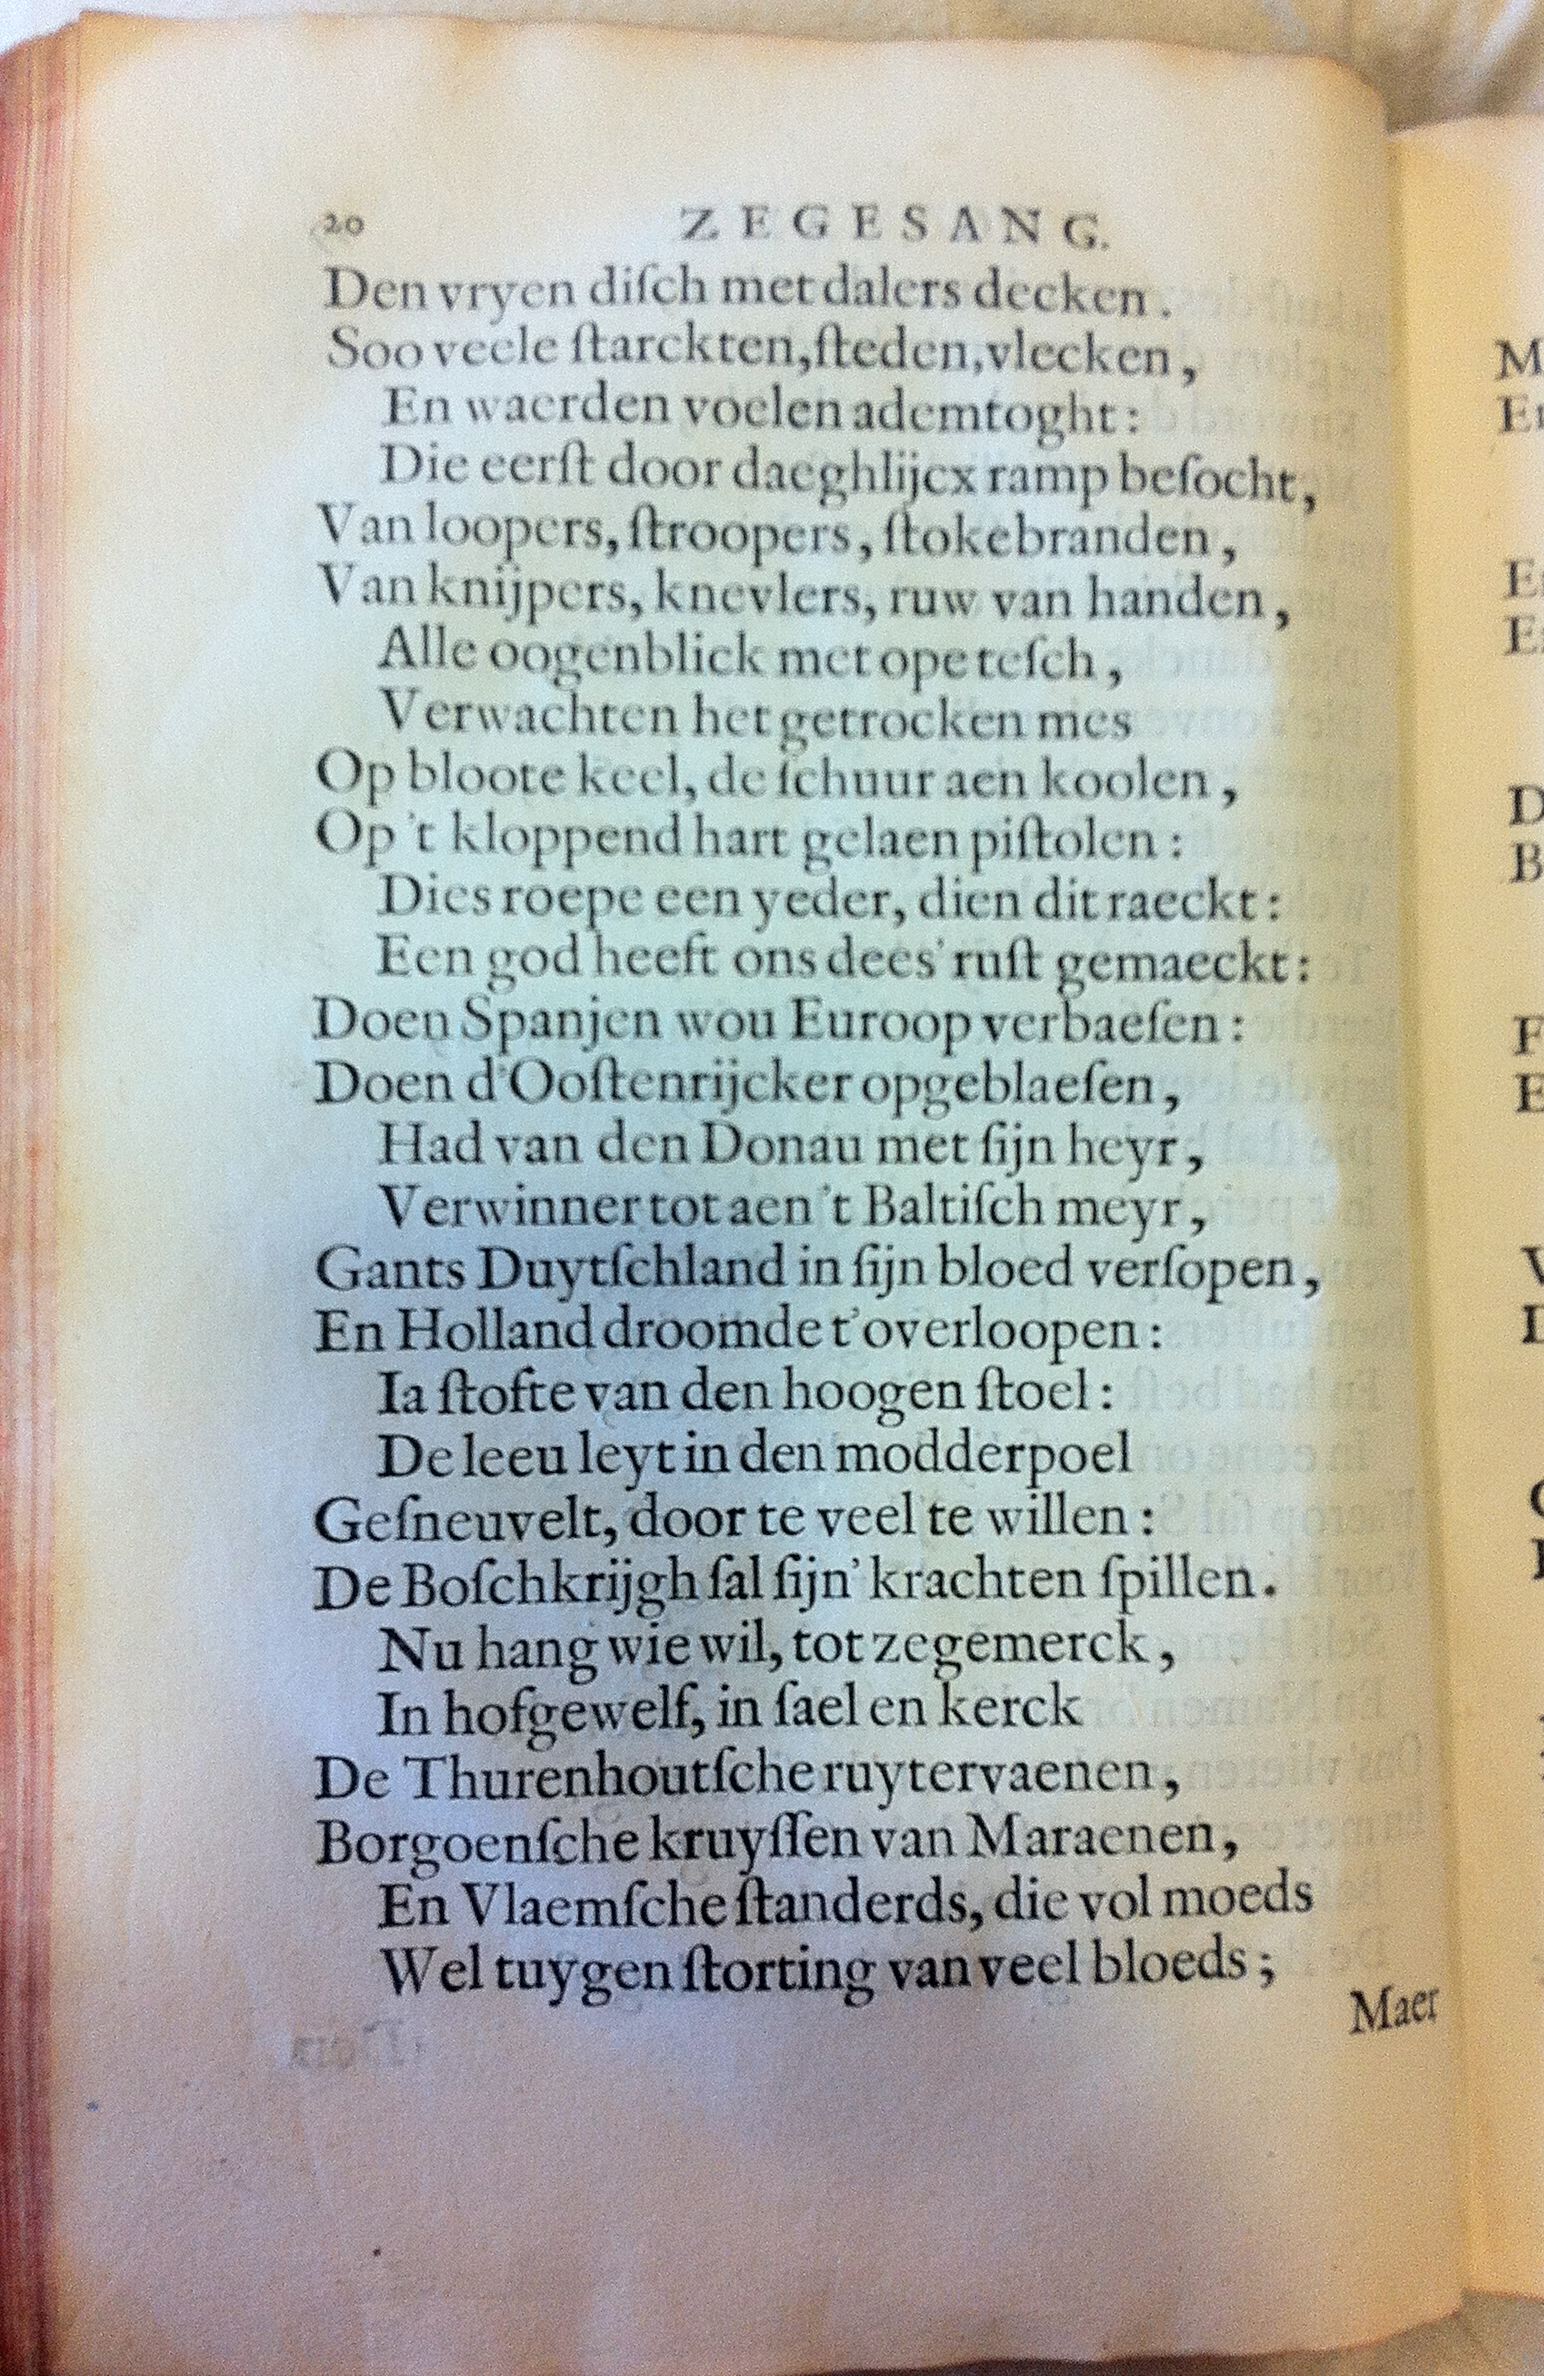 20 ZEGESANG.
Den vryen diſch met dalers decken.
Soo veele ſtarckten, ſteden, vlecken,
En waerden voelen ademtoght:
Die eerſt door daeghlijcx ramp beſocht,
Van loopers, ſtroopers, ſtokebranden,
Van knijpers, knevlers, ruw van handen,
Alle oogenblick met ope teſch,
Verwachten het getrocken mes
Op bloote keel, de ſchuur aen koolen,
Op 't kloppend hart gelaen piſtolen:
Dies roepe een yeder, dien dit raeckt:
Een god heeft ons dees' ruſt gemaeckt:
Doen Spanjen wou Euroop verbaeſen:
Doen d'Ooſtenrijcker opgeblaeſen,
Had van den Donau met ſijn heyr,
Verwinner tot aen 't Baltiſch meyr,
Gants Duytſchland in ſijn bloed verſopen,
En Holland droomde t'overloopen:
Ia ſtofte van den hoogen ſtoel:
De leeu leyt in den modderpoel
Geſneuvelt, door te veel te willen:
De Boſchkrijgh ſal ſijn' krachten ſpillen.
Nu hang wie wil, tot zegemerck,
In hofgewelf, in ſael en kerck
De Thurenhoutſche ruytervaenen,
Borgoenſche kruyſſen van Maraenen,
En Vlaemſche ſtanderds, die vol moeds
Wel tuygen ſtorting van veel bloeds;
Maer